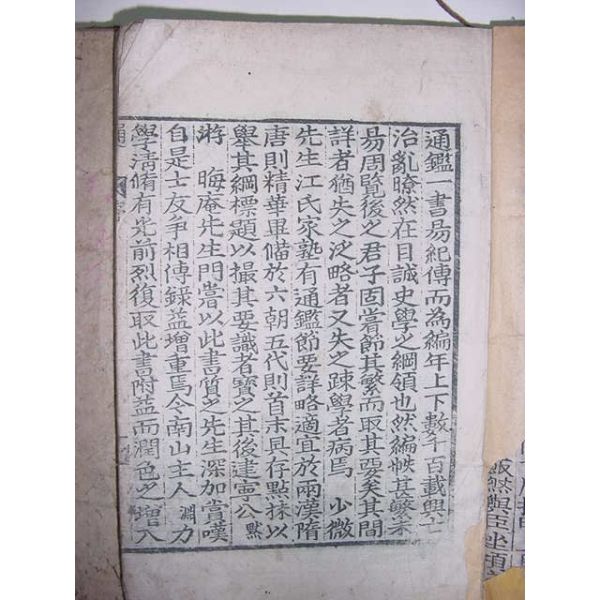 通鑑一書易紀傳而為編年上下數千百載興亡
治亂瞭然在目誠史學之綱領也然編帙甚繁未
易周覽後之君子固嘗節其繁而取其要矣其間
詳者猶失之泛略者又失之踈學者病焉 少微
先生江氏家塾有通鑑節要詳略適宜於兩漢隋
唐則精華畢備於六朝五代則首末具存點抹以
舉其綱標題以撮其要識者寶之其後建寧公黙
游 晦庵先生門嘗以此書質之先生深加賞嘆
自是士友爭相傳錄益增重焉今南山主人淵力
學清脩有光前烈復取此書附益而潤色之增入